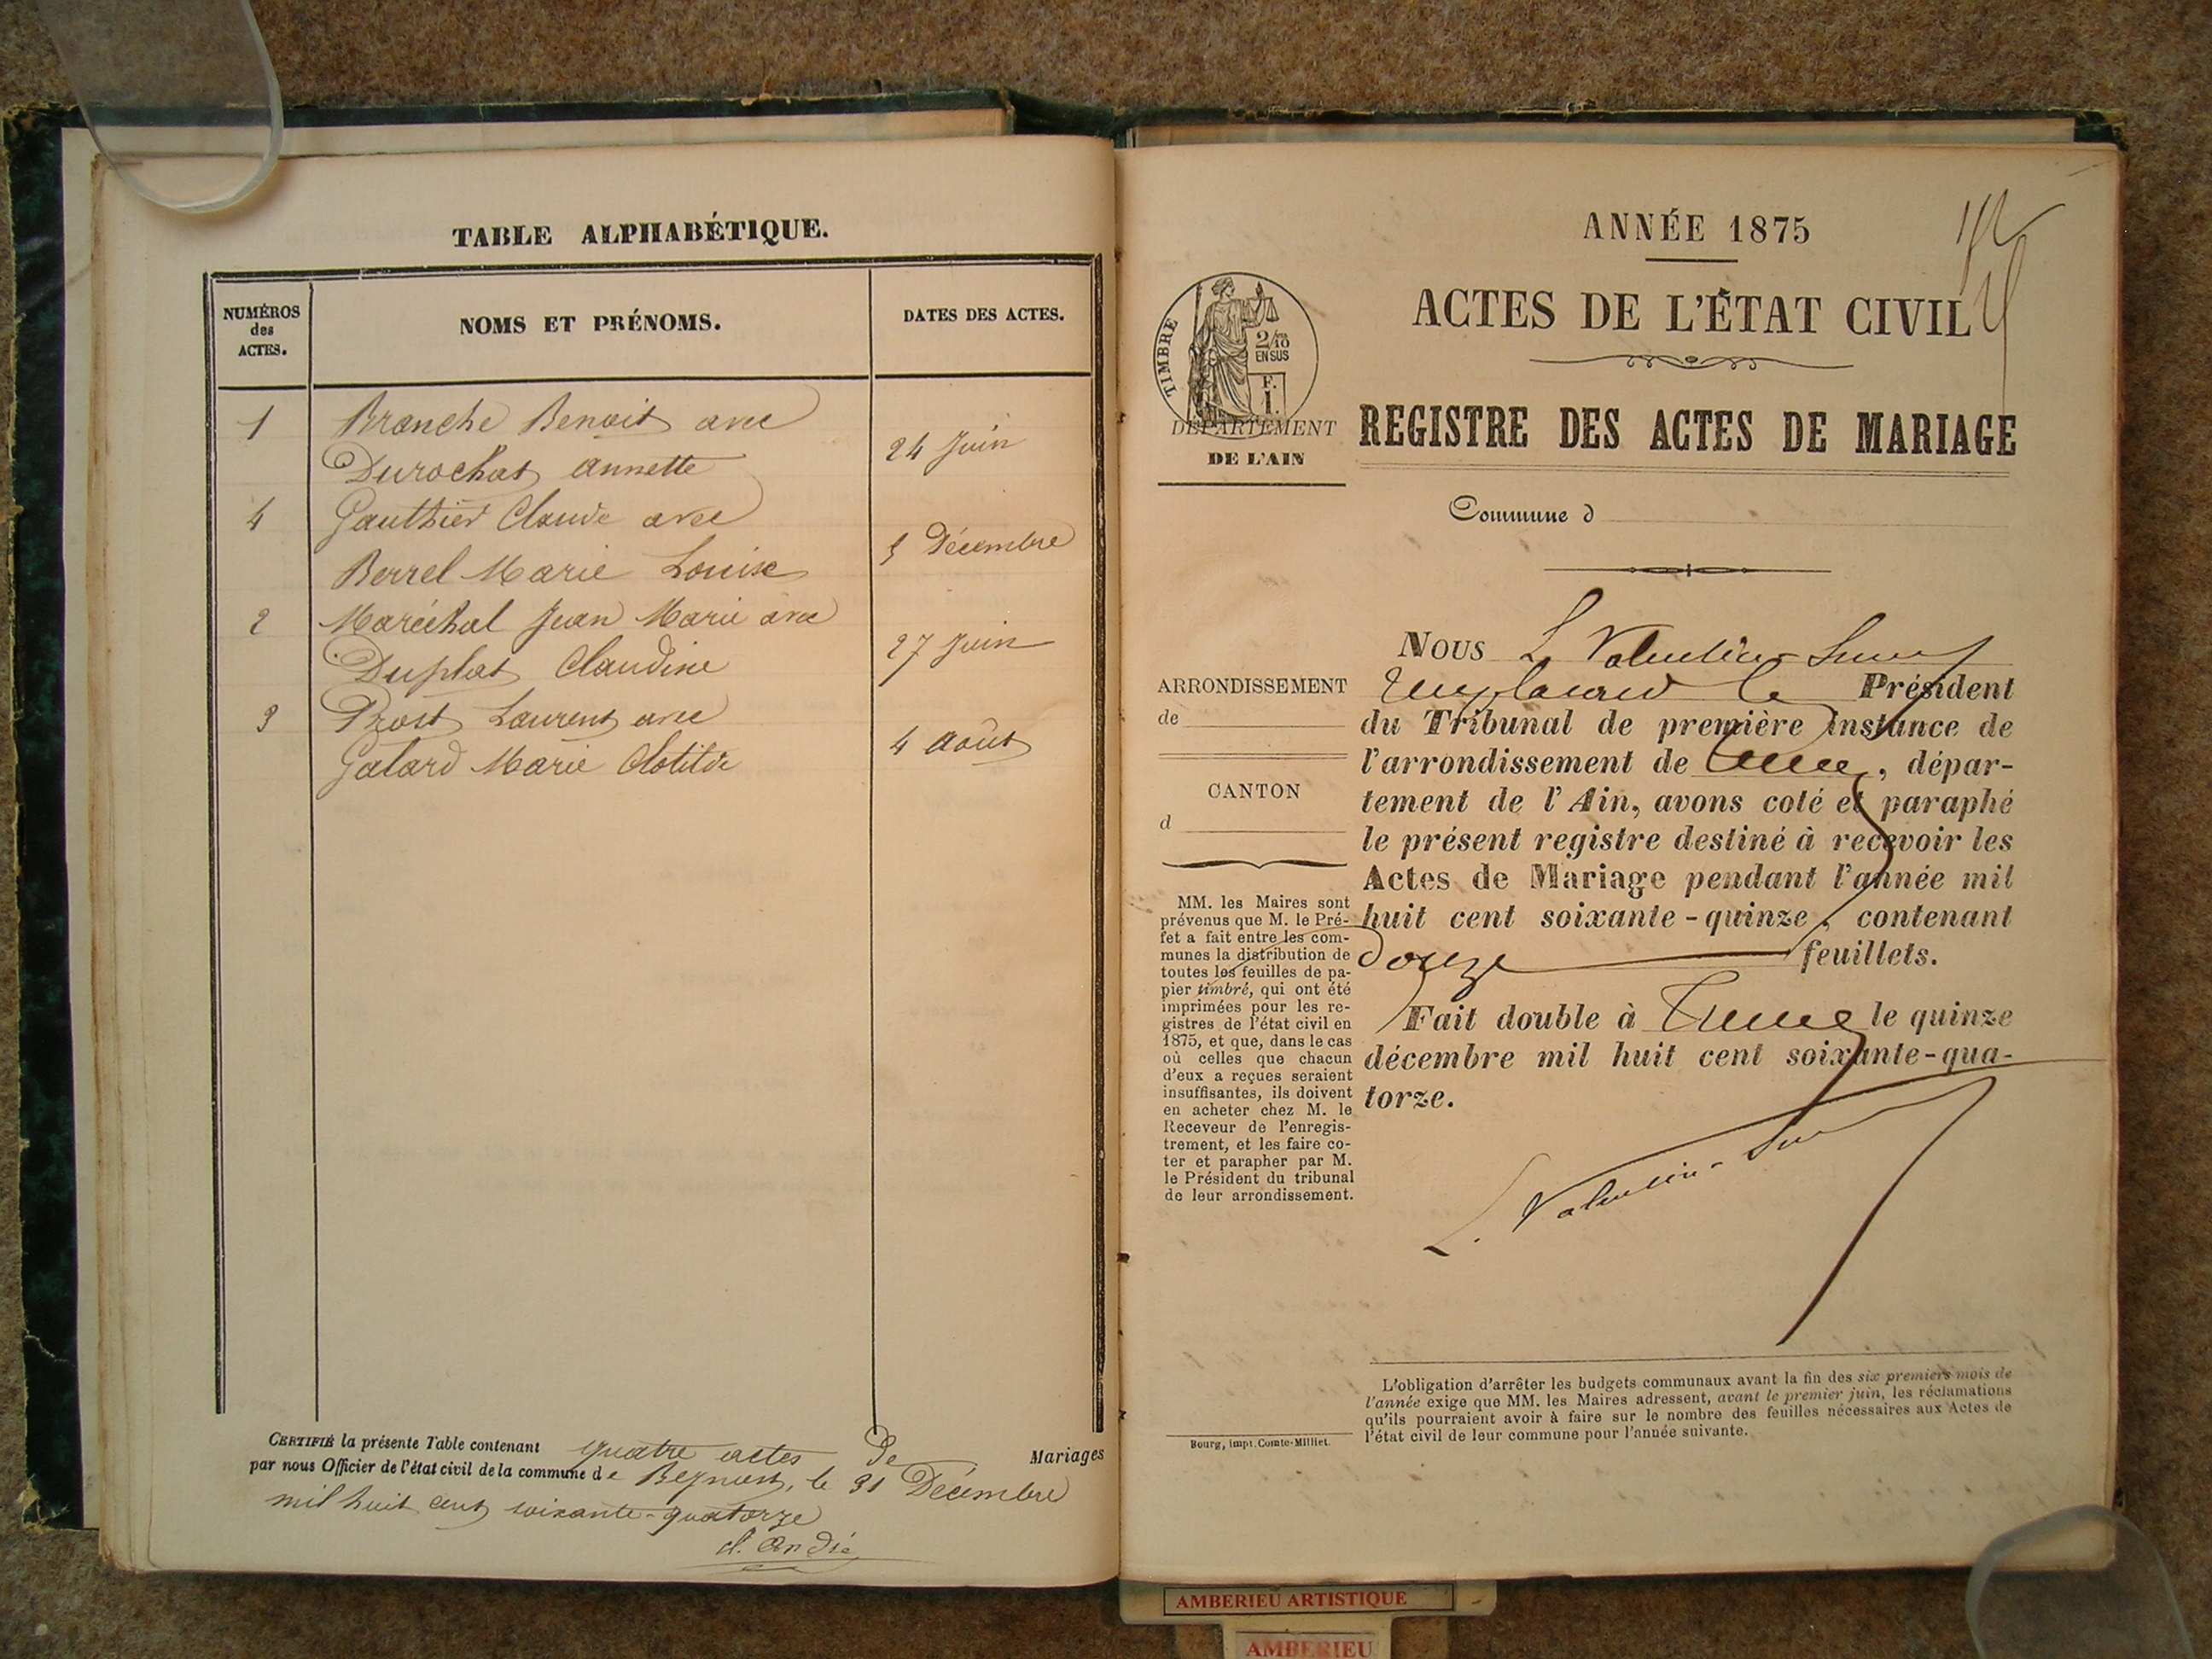 TABLE ALPHABÉTIQUE.
NUMÉROS
des
ACTES.
NOMS ET PRÉNOMS.
DATES DES ACTES.
1 Branche Benoit avec
Durochat annette
24 Juin
4 Gauthier Claude avec
Berrel Marie Louise
5 Décembre
2 Maréchal Jean Marie avec
Duplat Claudine
27 Juin
3 Prost Laurent avec
Galard Marie Clotilde
4 août
CERTIFIÉ la présente Table contenant quatre actes De Mariages
par nous Officier de l'état civil de la commune de Beynost, le 31 Décembre
mil huit cent soixante-quatorze
cl. André
ANNÉE 1875
ACTES DE L'ÉTAT CIVIL
TIMBRE
2/10
EN SUS
F.
1.
DÉPARTEMENT
DE L'AIN
REGISTRE DES ACTES DE MARIAGE
Commune d
ARRONDISSEMENT
de
CANTON
d
MM. les Maires sont
prévenus que M. le Pré-
fet a fait entre les com-
munes la distribution de
toutes les feuilles de pa-
pier timbré, qui ont été
imprimées pour les re-
gistres de l'état civil en
1875, et que, dans le cas
où celles que chacun
d'eux a reçues seraient
insuffisantes, ils doivent
en acheter chez M. le
Receveur de l'enregis-
trement, et les faire co-
ter et parapher par M.
le Président du tribunal
de leur arrondissement.
Bourg, impr. Comte-Milliet.
NOUS L. Valentin-Smith
Remplaçant le Président
du Tribunal de première instance de
l'arrondissement de , dépar-
tement de l'Ain, avons coté et paraphé
le présent registre destiné à recevoir les
Actes de Mariage pendant l'année mil
huit cent soixante-quinze, contenant
douze feuillets.
Fait double à le quinze
décembre mil huit cent soixante-qua-
torze.
L. Valentin-Smith
L'obligation d'arrêter les budgets communaux avant la fin des six premiers mois de
l'année exige que MM. les Maires adressent, avant le premier juin, les réclamations
qu'ils pourraient avoir à faire sur le nombre des feuilles nécessaires aux Actes de
l'état civil de leur commune pour l'année suivante.
AMBERIEU ARTISTIQUE
AMBERIEU